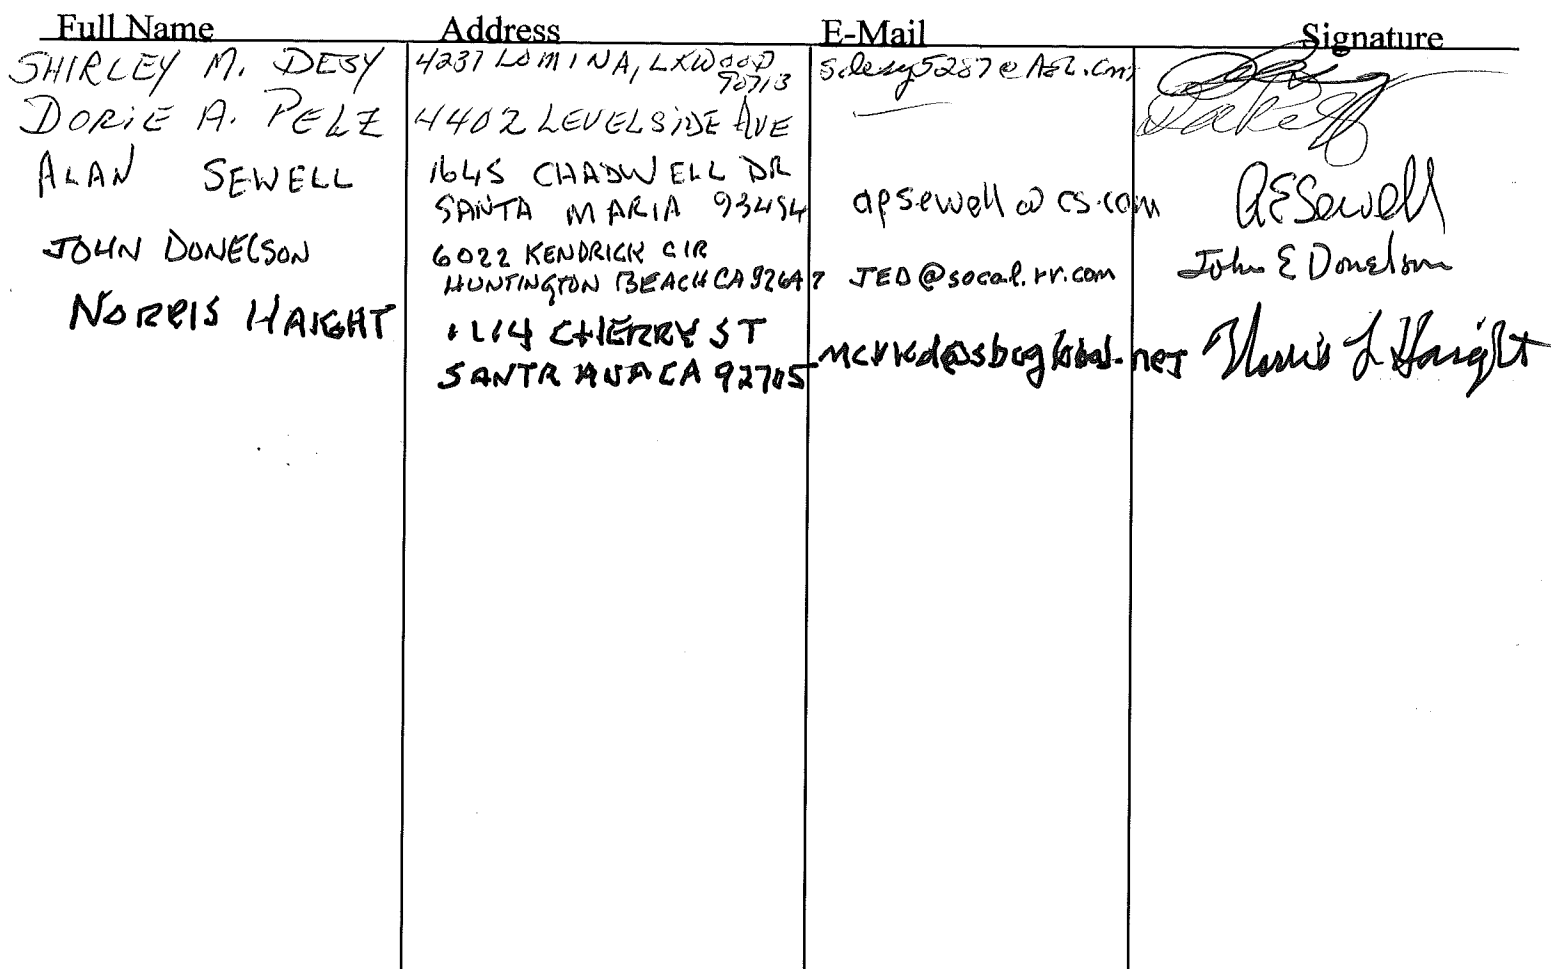 Full Name Address E-Mail Signature
SHIRLEY M. DESY 4237 LOMINA, LKWOOD sdesy5287@AOL.Com
90713
DORIE A. PELZ 4402 LEVELSIDE AVE
ALAN SEWELL 1645 CHADWELL DR
SANTA MARIA 93454 apsewell@cs.com AESewell
JOHN DONELSON 6022 KENDRICK CIR
HUNTINGTON BEACH CA 92647 JED@socal.rr.com John E Donelson
NORRIS HAIGHT 1114 CHERRY ST
SANTA ANA CA 92705 @sbcglobal.net Norris L Haight